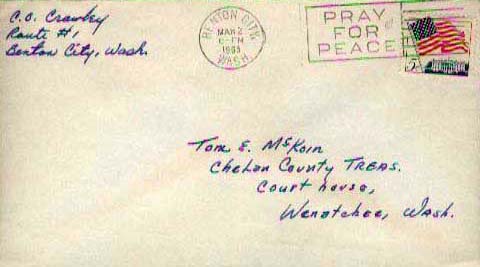 C.O. Crawley
Route #1
Benton City, Wash.
BENTON CITY,
MAR 2
6-PM
1963
WASH.
PRAY
FOR
PEACE
5¢
Tom E. McKoin
Chelan County TREAS.
Court house,
Wenatchee, Wash.